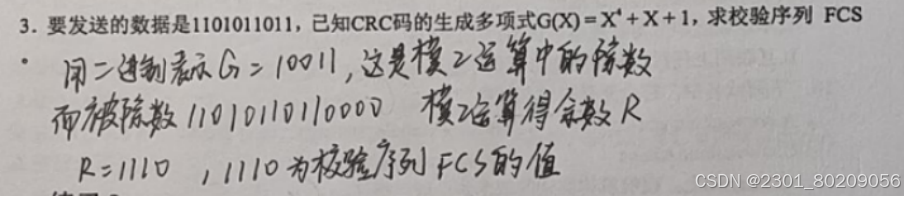 3. 要发送的数据是1101011011，已知CRC码的生成多项式G(X)=X⁴+X+1，求校验序列 FCS
用二进制表示G=10011，这是模2运算中的除数
而被除数11010110110000 模2运算得余数R
R=1110 ，1110为校验序列FCS的值
CSDN @2301_80209056